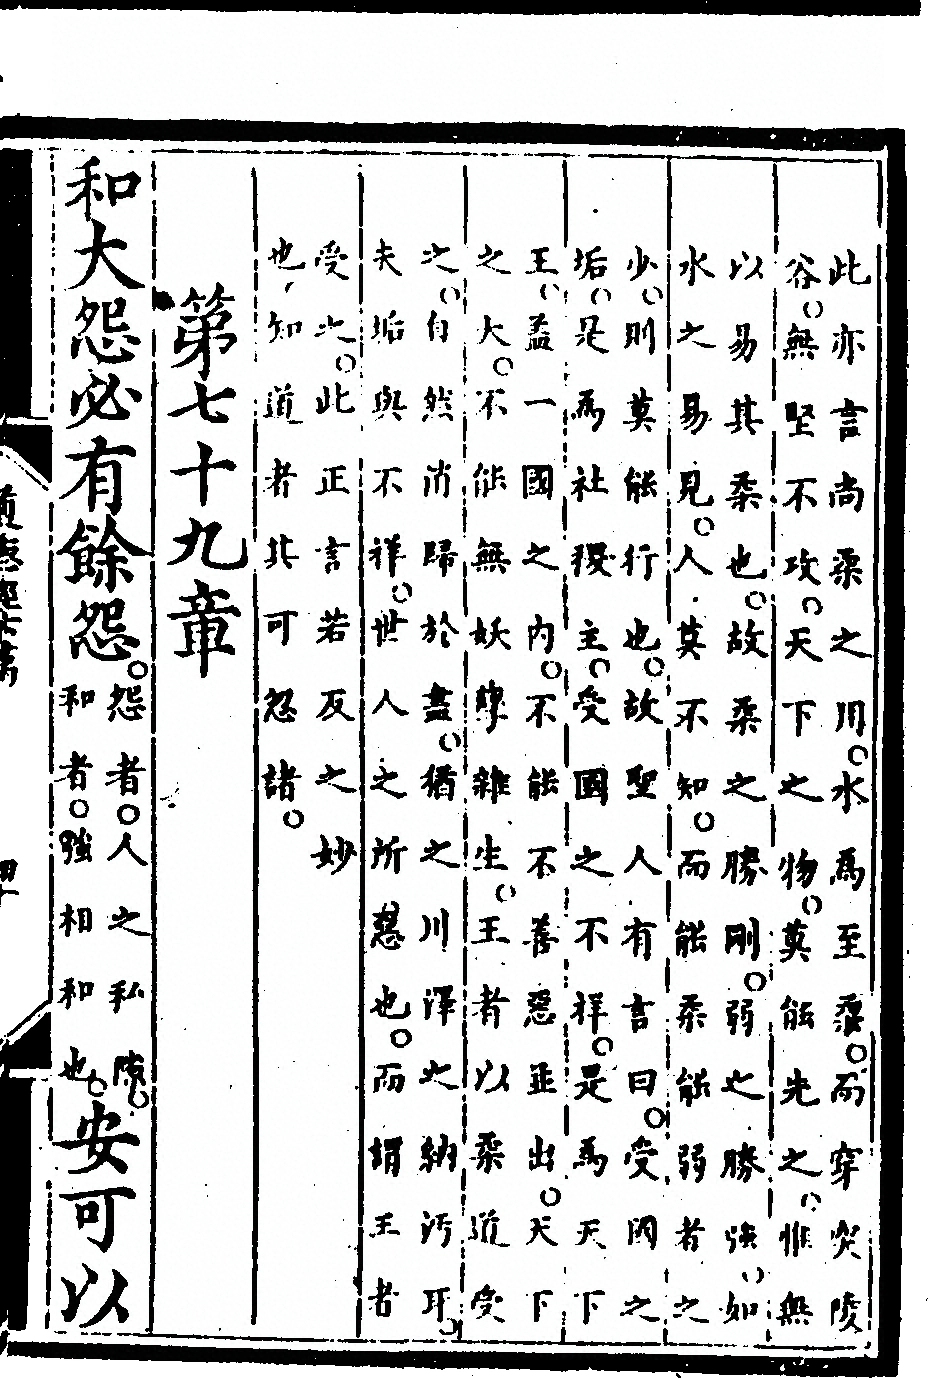 此亦言尚柔之用○水爲至柔○而穿突陵
谷○無堅不攻○天下之物○莫能先之○惟無
以易其柔也○故柔之勝剛○弱之勝強○如
水之易見○人莫不知○而能柔能弱者之
少○則莫能行也○故聖人有言曰○受國之
垢○是爲社稷主○受國之不祥○是爲天下
王○蓋一國之內○不能不善惡並出○天下
之大○不能無妖孽雜生○王者以柔道受
之○自然消歸於盡○猶之川澤之納汚耳○
夫垢與不祥○世人之所惡也○而謂王者
受之○此正言若反之妙
也○知道者其可忽諸○
第七十九章
和大怨必有餘怨○
怨者○人之私隙○
和者○強相和也○
安可以